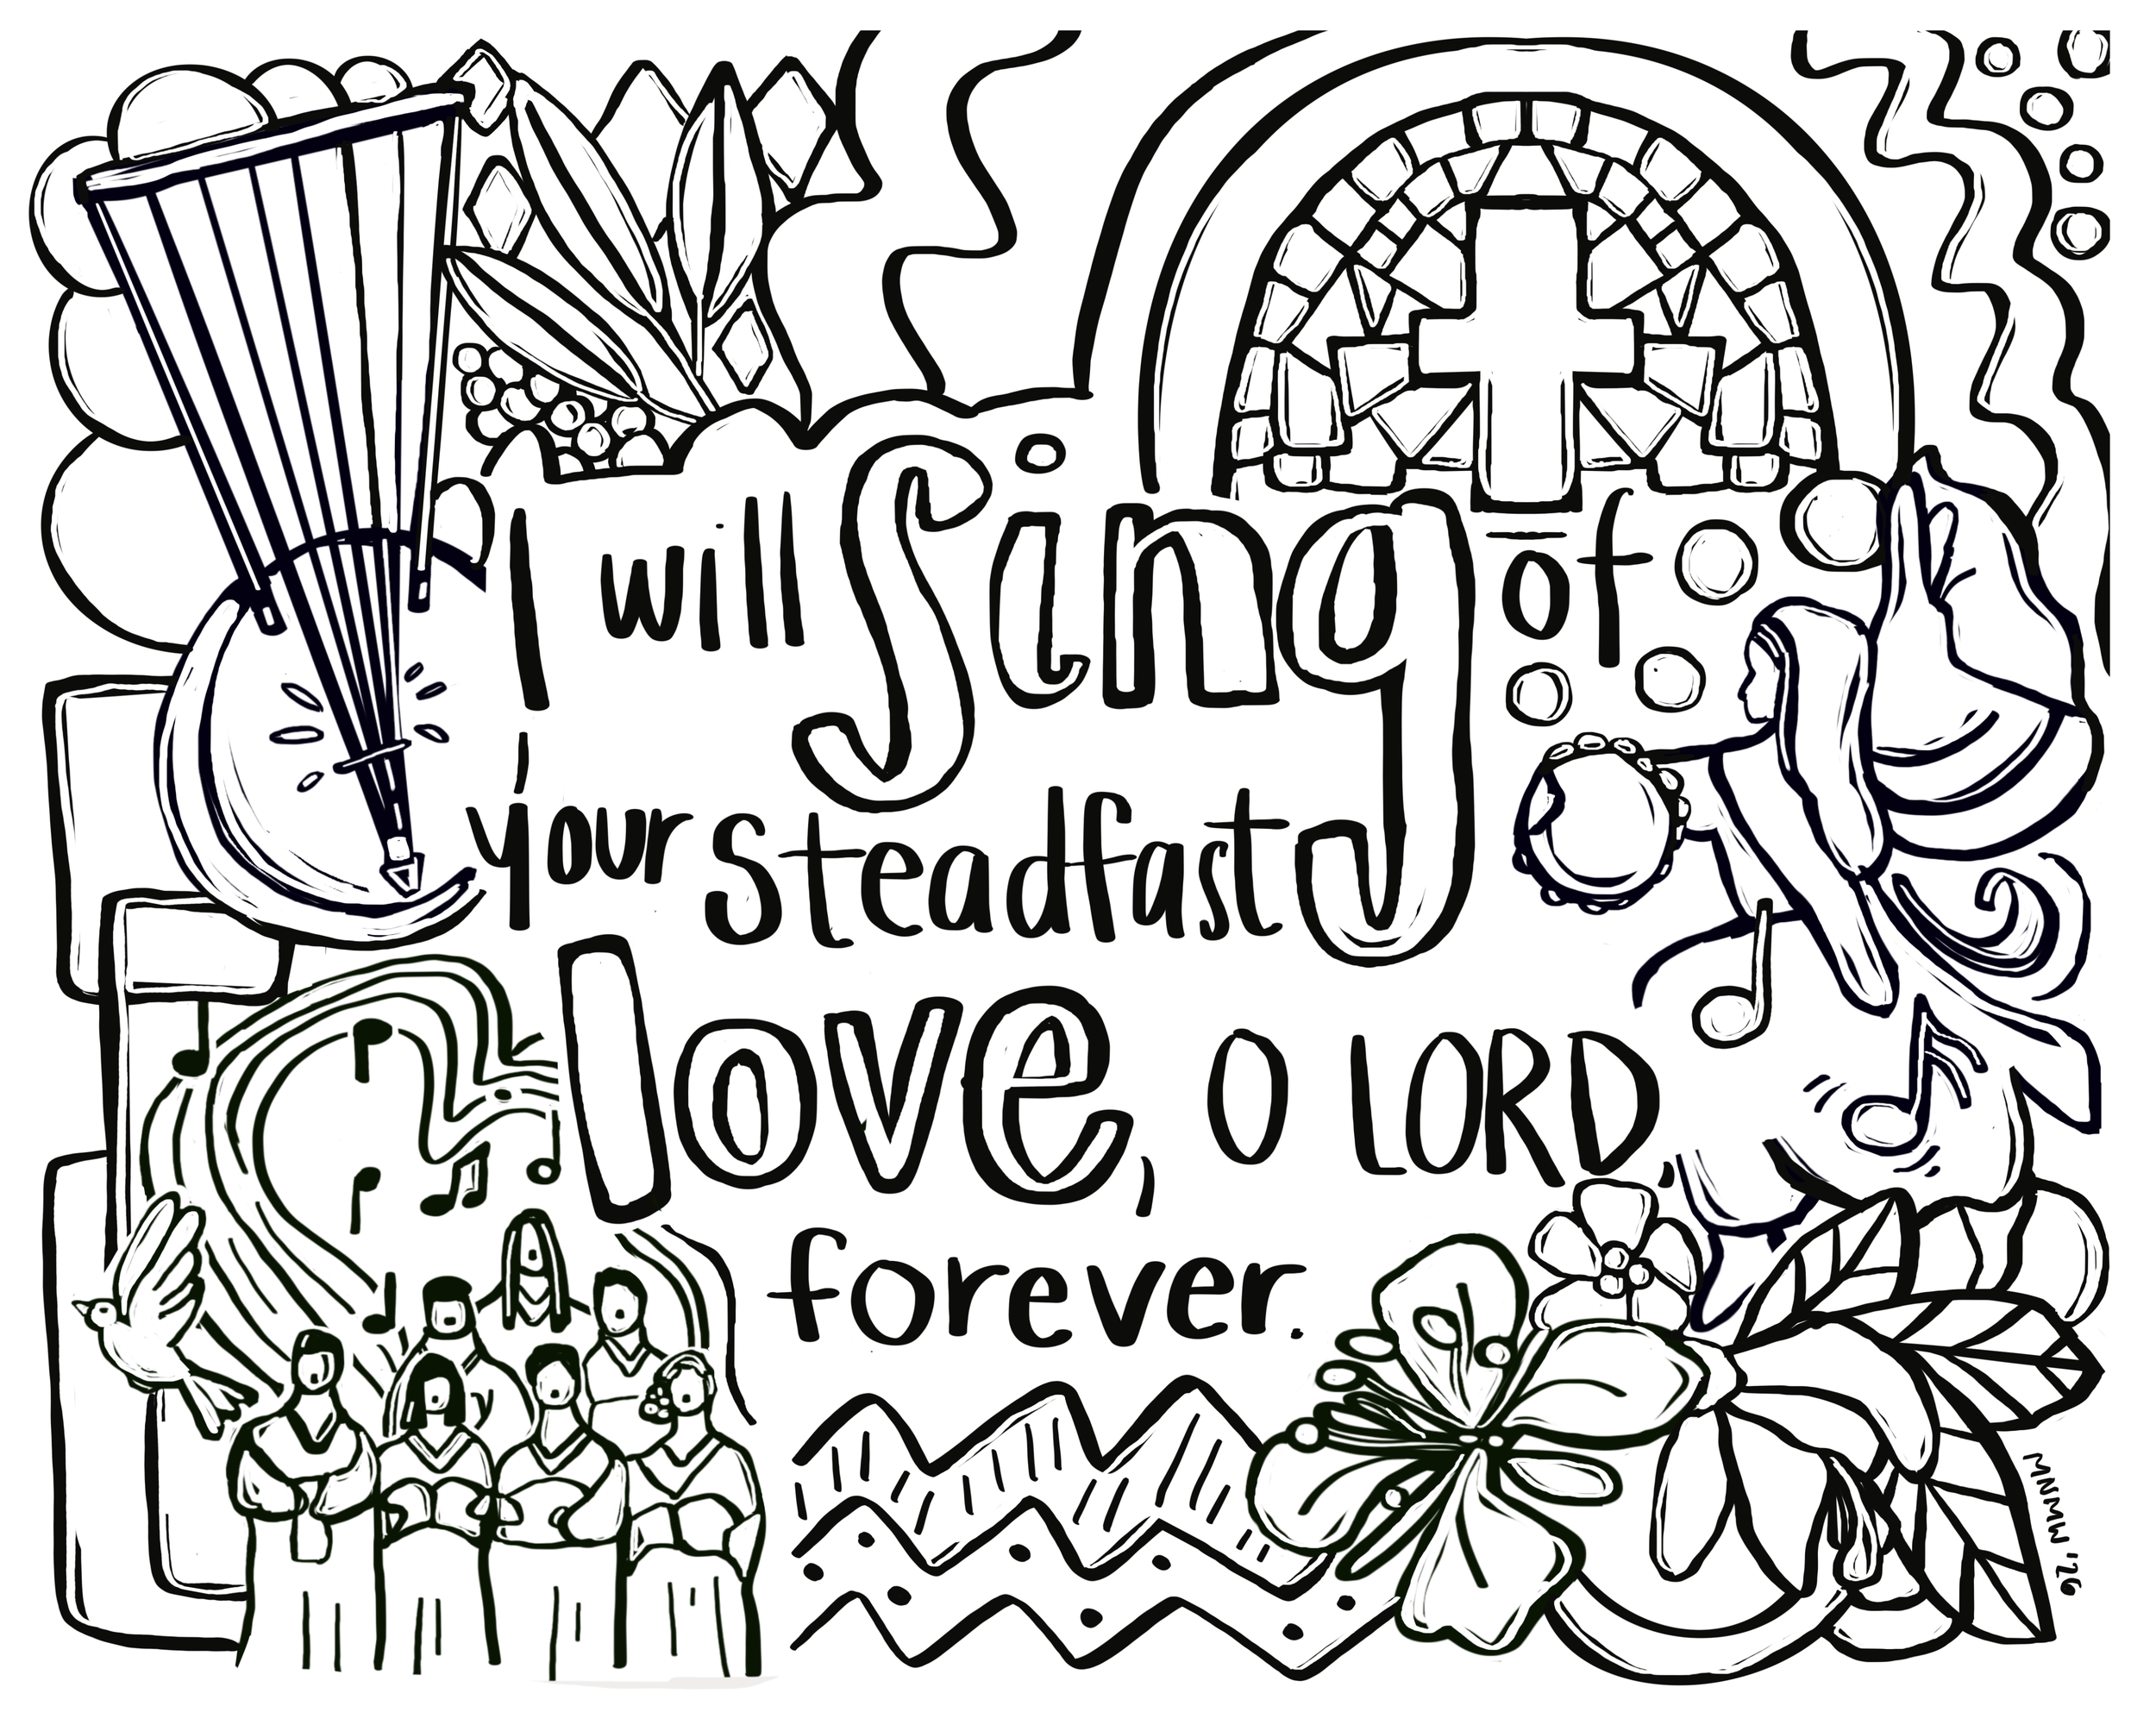 I will Sing of
your steadfast
love, O LORD,
forever.
MNMW '26